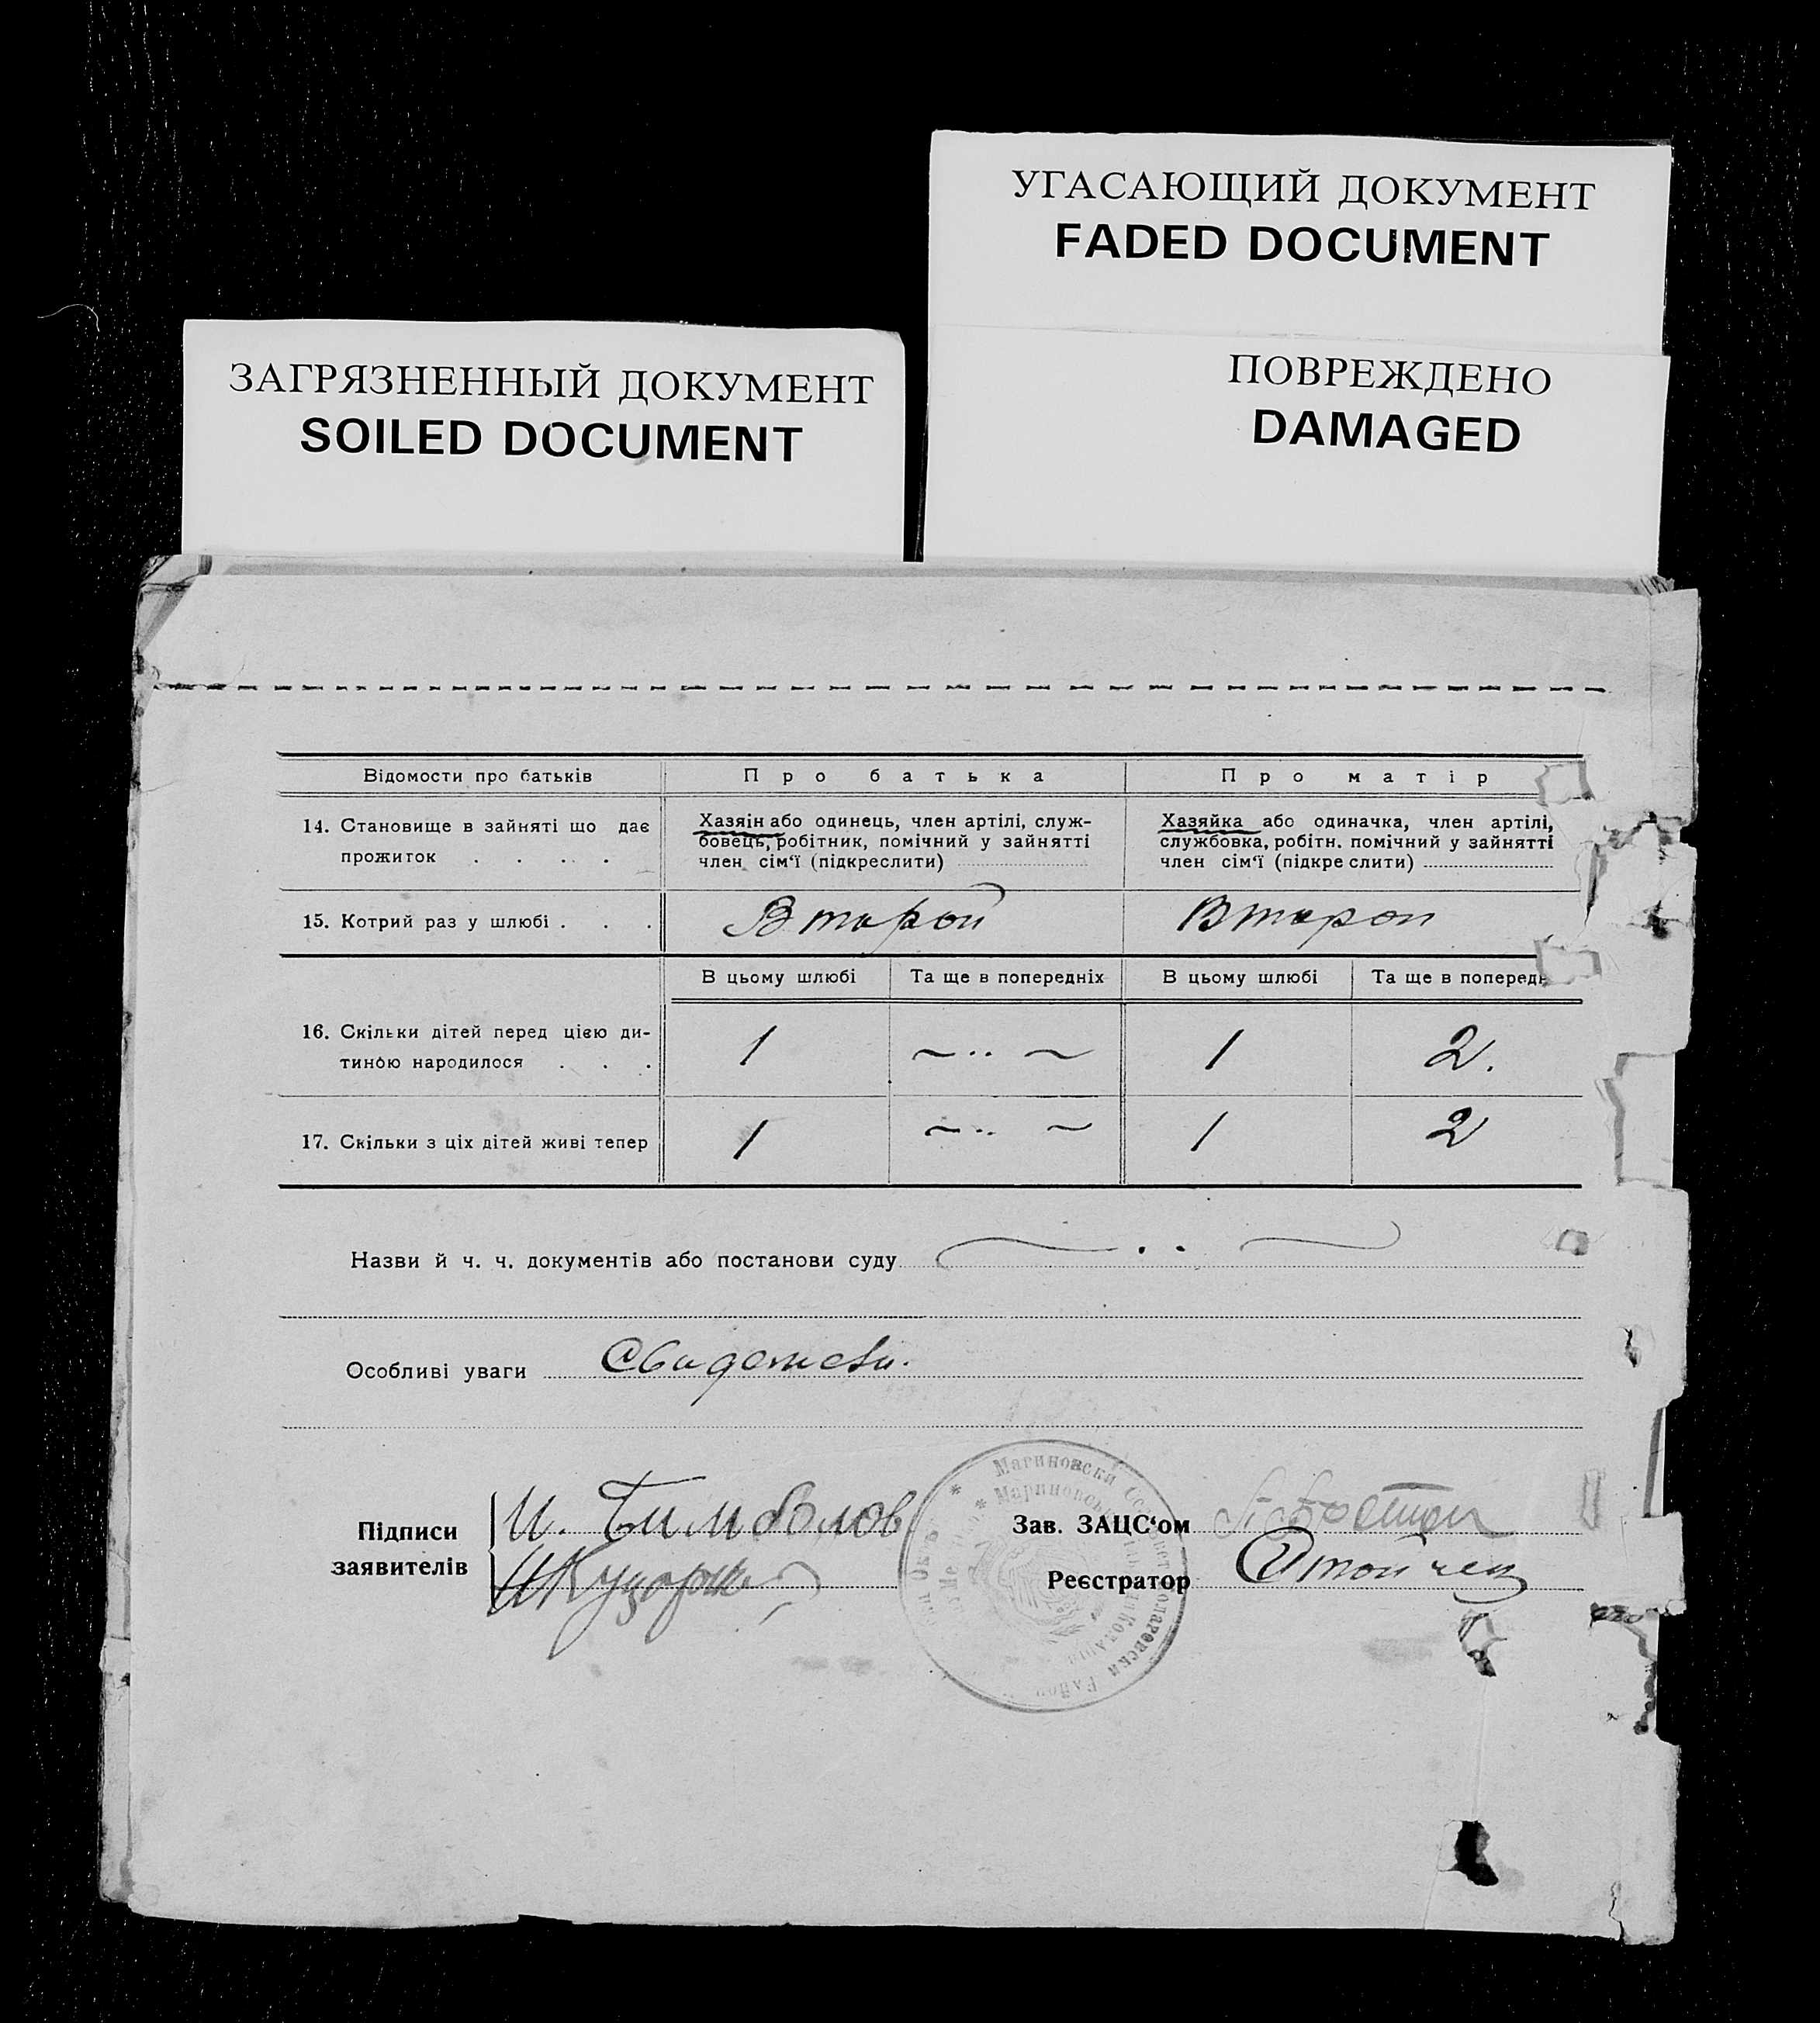 УГАСАЮЩИЙ ДОКУМЕНТ
FADED DOCUMENT
ЗАГРЯЗНЕННЫЙ ДОКУМЕНТ
SOILED DOCUMENT
ПОВРЕЖДЕНО
DAMAGED
Відомости про батьків
Про батька
Про матір
14. Становище в зайняті що дає
прожиток . . . .
Хазяін або одинець, член артілі, служ-
бовець, робітник, помічний у зайнятті
член сім‘ї (підкреслити)
Хазяйка або одиначка, член артілі,
службовка, робітн. помічний у зайнятті
член сім‘ї (підкре слити)
15. Котрий раз у шлюбі . . .
Второй
Второй
В цьому шлюбі
Та ще в попередніх
В цьому шлюбі
Та ще в поперед
16. Скільки дітей перед цією ди-
тиною народилося . . .
1
~ .. ~
1
2.
17. Скільки з ціх дітей живі тепер
1
~ .. ~
1
2
Назви й ч. ч. документів або постанови суду
Особливі уваги
Свидетели.
Підписи
заявителів
И. Бимболов
Зав. ЗАЦС‘ом
Реєстратор